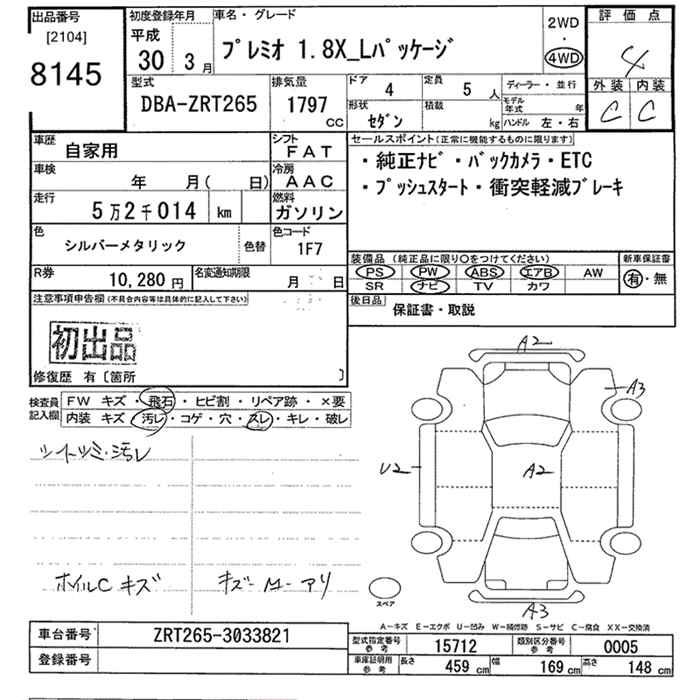 出品番号 初度登録年月 車名・グレード 2WD 評価点
[2104] 平成 4WD 4
8145 30 3月 プレミオ 1.8X_Lパッケージ
型式 排気量 ドア 定員 ディーラー・並行 外装 内装
DBA-ZRT265 1797 CC 4 5 人 モデル年式 年 C C
形状 積載 kg ハンドル 左・右
セダン
車歴 自家用 シフト FAT セールスポイント(正常に機能するものに限ります)
車検 年 月( 日) 冷房 AAC ・純正ナビ・バックカメラ・ETC
走行 5万2千014 km 燃料 ガソリン ・プッシュスタート・衝突軽減ブレーキ
色 シルバーメタリック 色替 色コード 1F7
装備品(純正品に限り○をつけてください) 新車保証書
PS PW ABS エアB AW 有・無
SR ナビ TV カワ
R券 10,280円 名変通知期限 月 日
後日品 保証書・取説
注意事項申告欄(不具合内容等は具体的に記入して下さい)
初出品
修復歴 有〔箇所 〕
検査員記入欄 FW キズ・飛石・ヒビ割・リペア跡・×要
内装 キズ・汚レ・コゲ・穴・スレ・キレ・破レ
シートシミ・汚レ
ホイルC キズ キズ-M-アリ
A2
A3
U2 A2
A3
スペア
A-キズ E-エクボ U-凹み W-補修跡 S-サビ C-腐食 XX-交換済
車台番号 ZRT265-3033821 型式指定番号参考 15712 類別区分番号参考 0005
登録番号 車庫証明用参考 長さ 459 cm 幅 169 cm 高さ 148 cm